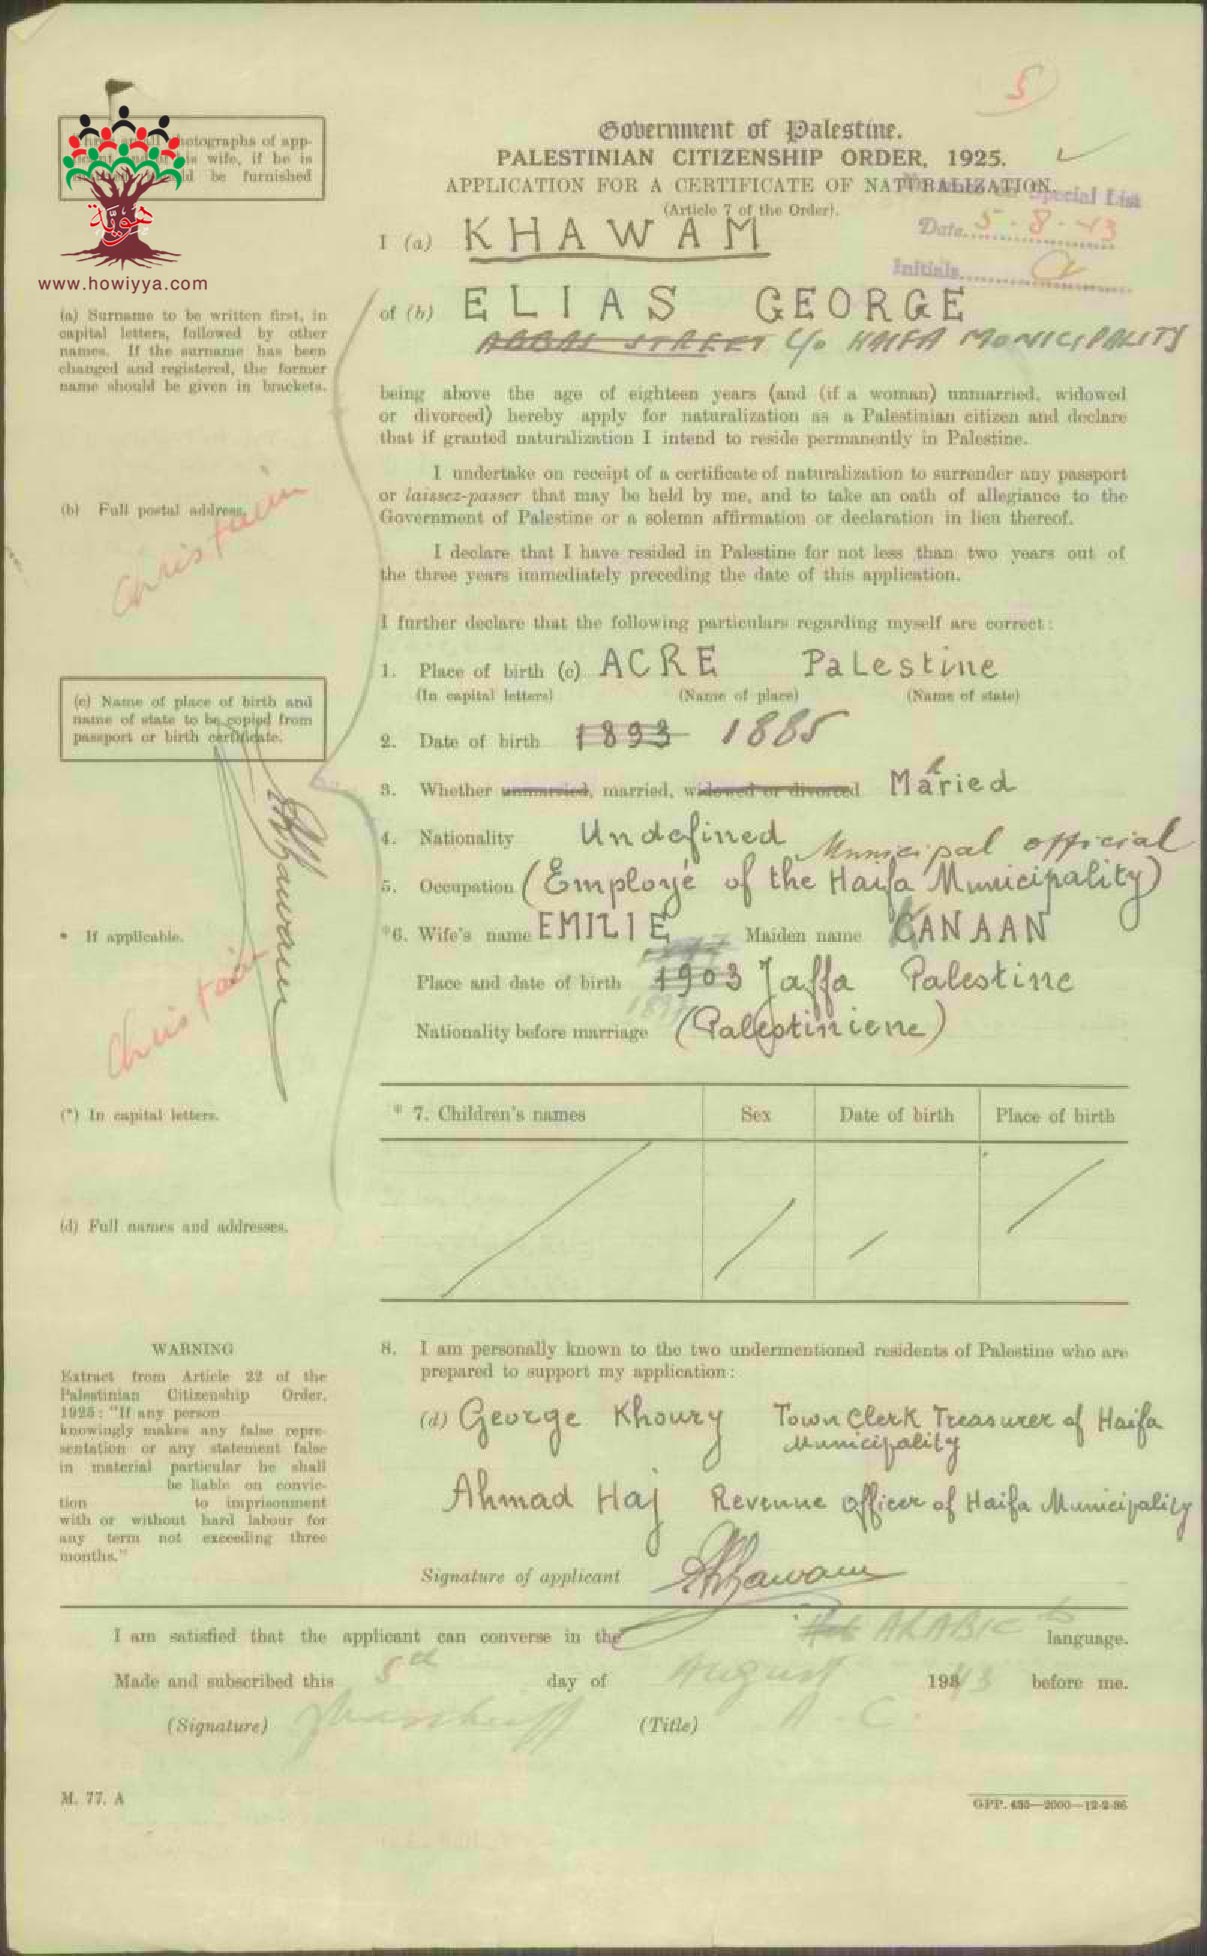 5
Government of Palestine.
PALESTINIAN CITIZENSHIP ORDER, 1925.
APPLICATION FOR A CERTIFICATE OF NATURALIZATION.
(Article 7 of the Order).
Special List
Date 5-8-43
Initials
photographs of app-
wife, if he is
be furnished
هوية
www.howiyya.com
I (a) KHAWAM
of (b) ELIAS GEORGE
ABBAS STREET C/o HAIFA MUNICIPALITY
(a) Surname to be written first, in
capital letters, followed by other
names. If the surname has been
changed and registered, the former
name should be given in brackets.
being above the age of eighteen years (and (if a woman) unmarried, widowed
or divorced) hereby apply for naturalization as a Palestinian citizen and declare
that if granted naturalization I intend to reside permanently in Palestine.
I undertake on receipt of a certificate of naturalization to surrender any passport
or laissez-passer that may be held by me, and to take an oath of allegiance to the
Government of Palestine or a solemn affirmation or declaration in lieu thereof.
(b) Full postal address.
Christain
I declare that I have resided in Palestine for not less than two years out of
the three years immediately preceding the date of this application.
I further declare that the following particulars regarding myself are correct:
1. Place of birth (c) ACRE Palestine
(In capital letters) (Name of place) (Name of state)
(c) Name of place of birth and
name of state to be copied from
passport or birth certificate.
2. Date of birth 1893 1885
3. Whether unmarried, married, widowed or divorced Maried
r
4. Nationality Undefined
Municipal official
5. Occupation (Employé of the Haifa Municipality)
Khawam
* If applicable.
*6. Wife's name EMILIE Maiden name KANAAN
Place and date of birth 1903 Jaffa Palestine
Nationality before marriage (Palestiniene)
Christain
(*) In capital letters.
* 7. Children's names Sex Date of birth Place of birth
(d) Full names and addresses.
8. I am personally known to the two undermentioned residents of Palestine who are
prepared to support my application:
(d) George Khoury Town Clerk Treasurer of Haifa
Municipality
Ahmad Haj Revenue officer of Haifa Municipality
Signature of applicant Khawam
WARNING
Extract from Article 22 of the
Palestinian Citizenship Order,
1925: "If any person
knowingly makes any false repre-
sentation or any statement false
in material particular he shall
be liable on convic-
tion to imprisonment
with or without hard labour for
any term not exceeding three
months."
I am satisfied that the applicant can converse in the ARABIC language.
Made and subscribed this 5th day of August 1943 before me.
(Signature) (Title) A.C.
M. 77. A
GPP. 435—2000—12-2-36